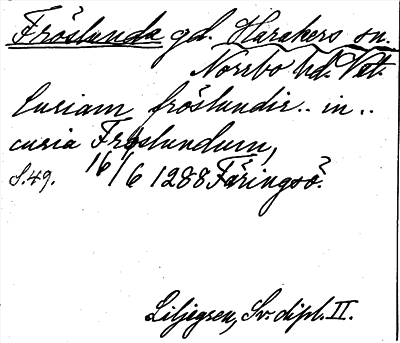 Fröslunda gd. Harakers sn.
Norrbo hd. Vst.
Curiam fröslundir.. in..
curia Froslundum,
S.49. 16/6 1288 Färingsö?.
Liljegren, Sv. dipl. II.